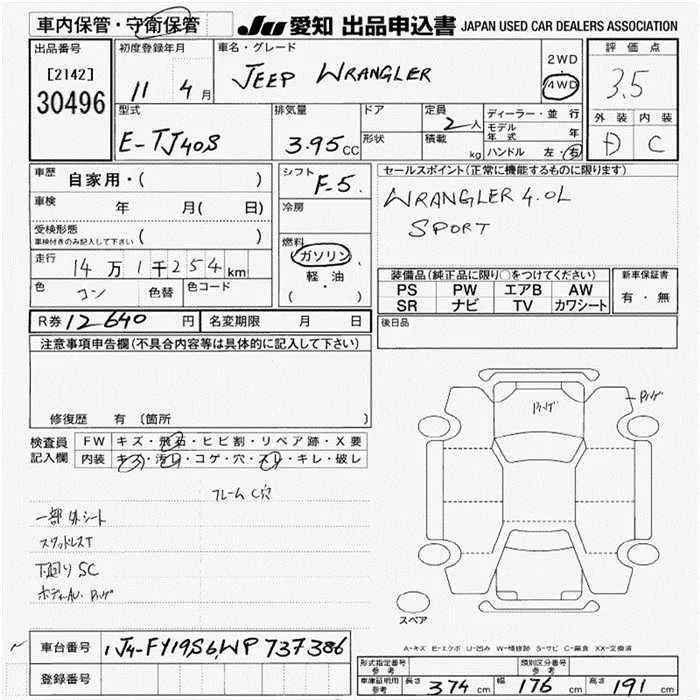 車内保管・守衛保管
JU 愛知 出品申込書 JAPAN USED CAR DEALERS ASSOCIATION
出品番号
[2142]
30496
初度登録年月
11 4月
車名・グレード
JEEP WRANGLER
2WD
4WD
評価点
3.5
外装 内装
D C
型式
E-TJ40S
排気量
3.95 CC
ドア
形状
定員
2人
積載
kg
ディーラー・並行
モデル年式 年
ハンドル 左・右
車歴 自家用・( )
車検 年 月( 日)
受検形態
車検付きのみ記入して下さい ( )
走行 14万1千254km
色 コン 色替 色コード
シフト F-5
冷房
燃料
ガソリン
軽・油
( )
セールスポイント(正常に機能するものに限ります)
WRANGLER 4.0L
SPORT
装備品(純正品に限り○をつけてください)
PS PW エアB AW
SR ナビ TV カワシート
新車保証書
有・無
R券 12640 円 名変期限 月 日
後日品
注意事項申告欄(不具合内容等は具体的に記入して下さい)
修復歴 有 (箇所 )
検査員記入欄
FW キズ・飛石・ヒビ割・リペア跡・X要
内装 キズ・汚レ・コゲ・穴・スレ・キレ・破レ
フレーム C穴
一部外シート
スタッドレスT
下廻り SC
スペア
A-キズ E-エクボ U-凹み W-補修跡 S-サビ C-腐食 XX-交換済
車台番号 1J4-FY19S6WP737386
登録番号
形式指定番号 参考
類別区分番号 参考
車庫証明用 参考 長さ 374 cm 幅 176 cm 高さ 191 cm